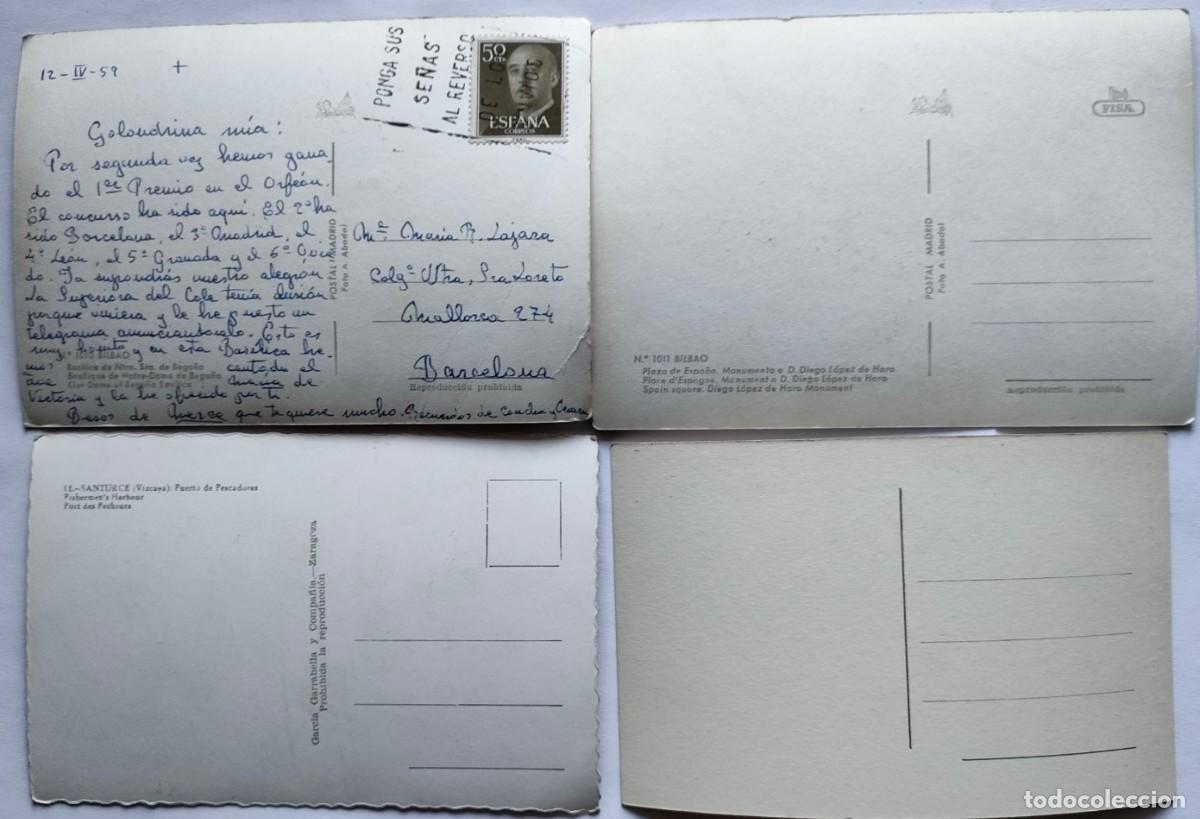 12-IV-59 +
PONGA SUS
SEÑAS
AL REVERSO
50 CTS
ESPAÑA
CORREOS
Golondrina mía:
Por segunda vez hemos gana-
do el 1er Premio en el Orfeón.
El concurso ha sido aquí. El 2º ha
sido Barcelona, el 3º Madrid, el
4º León, el 5º Granada y el 6º Ovie
do. Ya supondrás nuestro alegrón
La Superiora del Cole tenía ilusión
porque viniera y le he puesto un
telegrama anunciándoselo. Esto es
muy bonito y en esta Basílica he-
mos cantado el
Ave María de
Victoria y la he ofrecido por ti.
Besos de Merce que te quiere mucho. Recuerdos de
Nº 1010 BILBAO
Basílica de Ntra. Sra. de Begoña
Basilique de Notre-Dame de Begoña
Our Dame of Begoña Basilica
POSTAL MADRID
Foto A. Abadal
Mª María R. Lajara
Colgº Ntra. Sra. Loreto
Mallorca 274
Barcelona
Reproducción prohibida
FISA
POSTAL MADRID
Foto A. Abadal
N.º 1011 BILBAO
Plaza de España. Monumento a D. Diego López de Haro
Place d'Espagne. Monument a D. Diego López de Haro
Spain square. Diego López de Haro Monument
Reproducción prohibida
11.-SANTURCE (Vizcaya): Puerto de Pescadores
Fishermen's Harbour
Port des Pecheurs
García Garrabella y Compañía.—Zaragoza
Prohibida la reproducción
todocoleccion